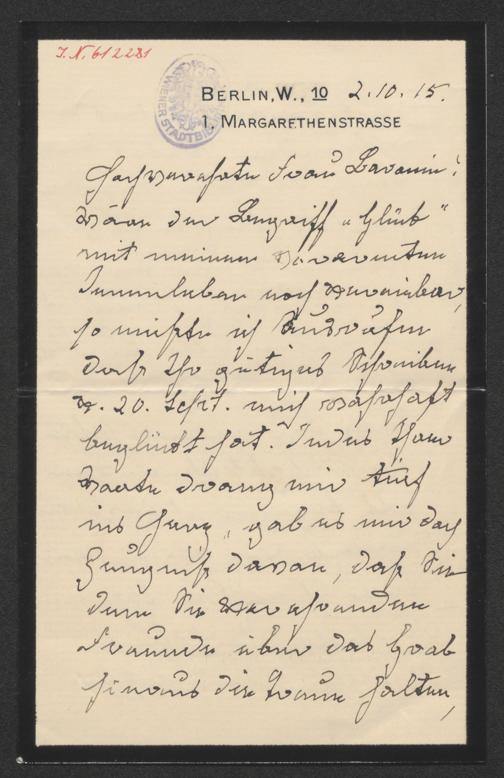 J.N. 612281
WIENER STADTBIBL
BERLIN, W., 10 2.10.15.
1, MARGARETHENSTRASSE
Hochverehrte Frau Baronin!
Wäre der Begriff „Glück"
mit meinem verarmten
Innenleben noch vereinbar,
so müßte ich ausrufen
daß Ihr gütiges Schreiben
v. 20. Sept. mich wahrhaft
beglückt hat. Jedes Ihrer
Worte drang mir tief
ins Herz, gab es mir doch
Zeugniß davon, daß Sie
dem Sie verehrenden
Freunde über das Grab
hinaus die Treue halten,